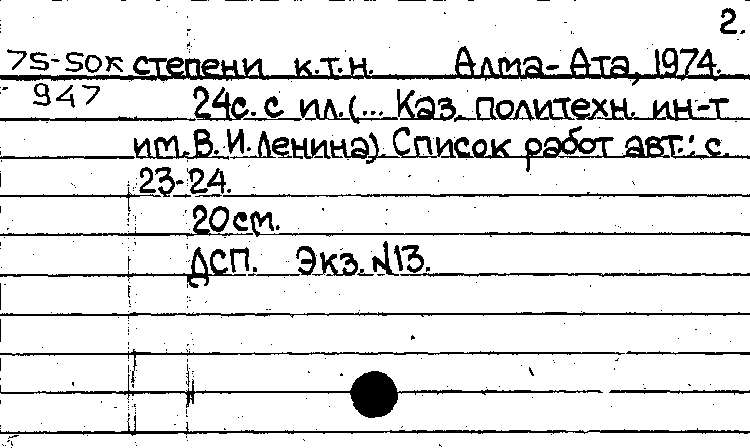 2.
75-50к степени к.т.н. Алма-Ата, 1974.
947 24с. с ил. (... Каз. политехн. ин-т
им. В. И. Ленина). Список работ авт.: с.
23-24.
20 см.
ДСП. Экз. N13.